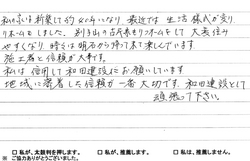 私の家は新築して約42年になり 最近では 生活様式が変り
リホームをしました。 別子山の古民家もリフォームをして 大変住み
やすくなり 時々は明石から帰って来て楽しんでいます
施工者と信頼が大事です。
私は信用して和田建設にお願いしています
地域に密着した信頼が一番大切です 和田建設として
頑張って下さい。
□ 私が、太鼓判を押します。 □ 私が、推薦します。 □ 私は、推薦しません。
※ ご協力ありがとうございました。